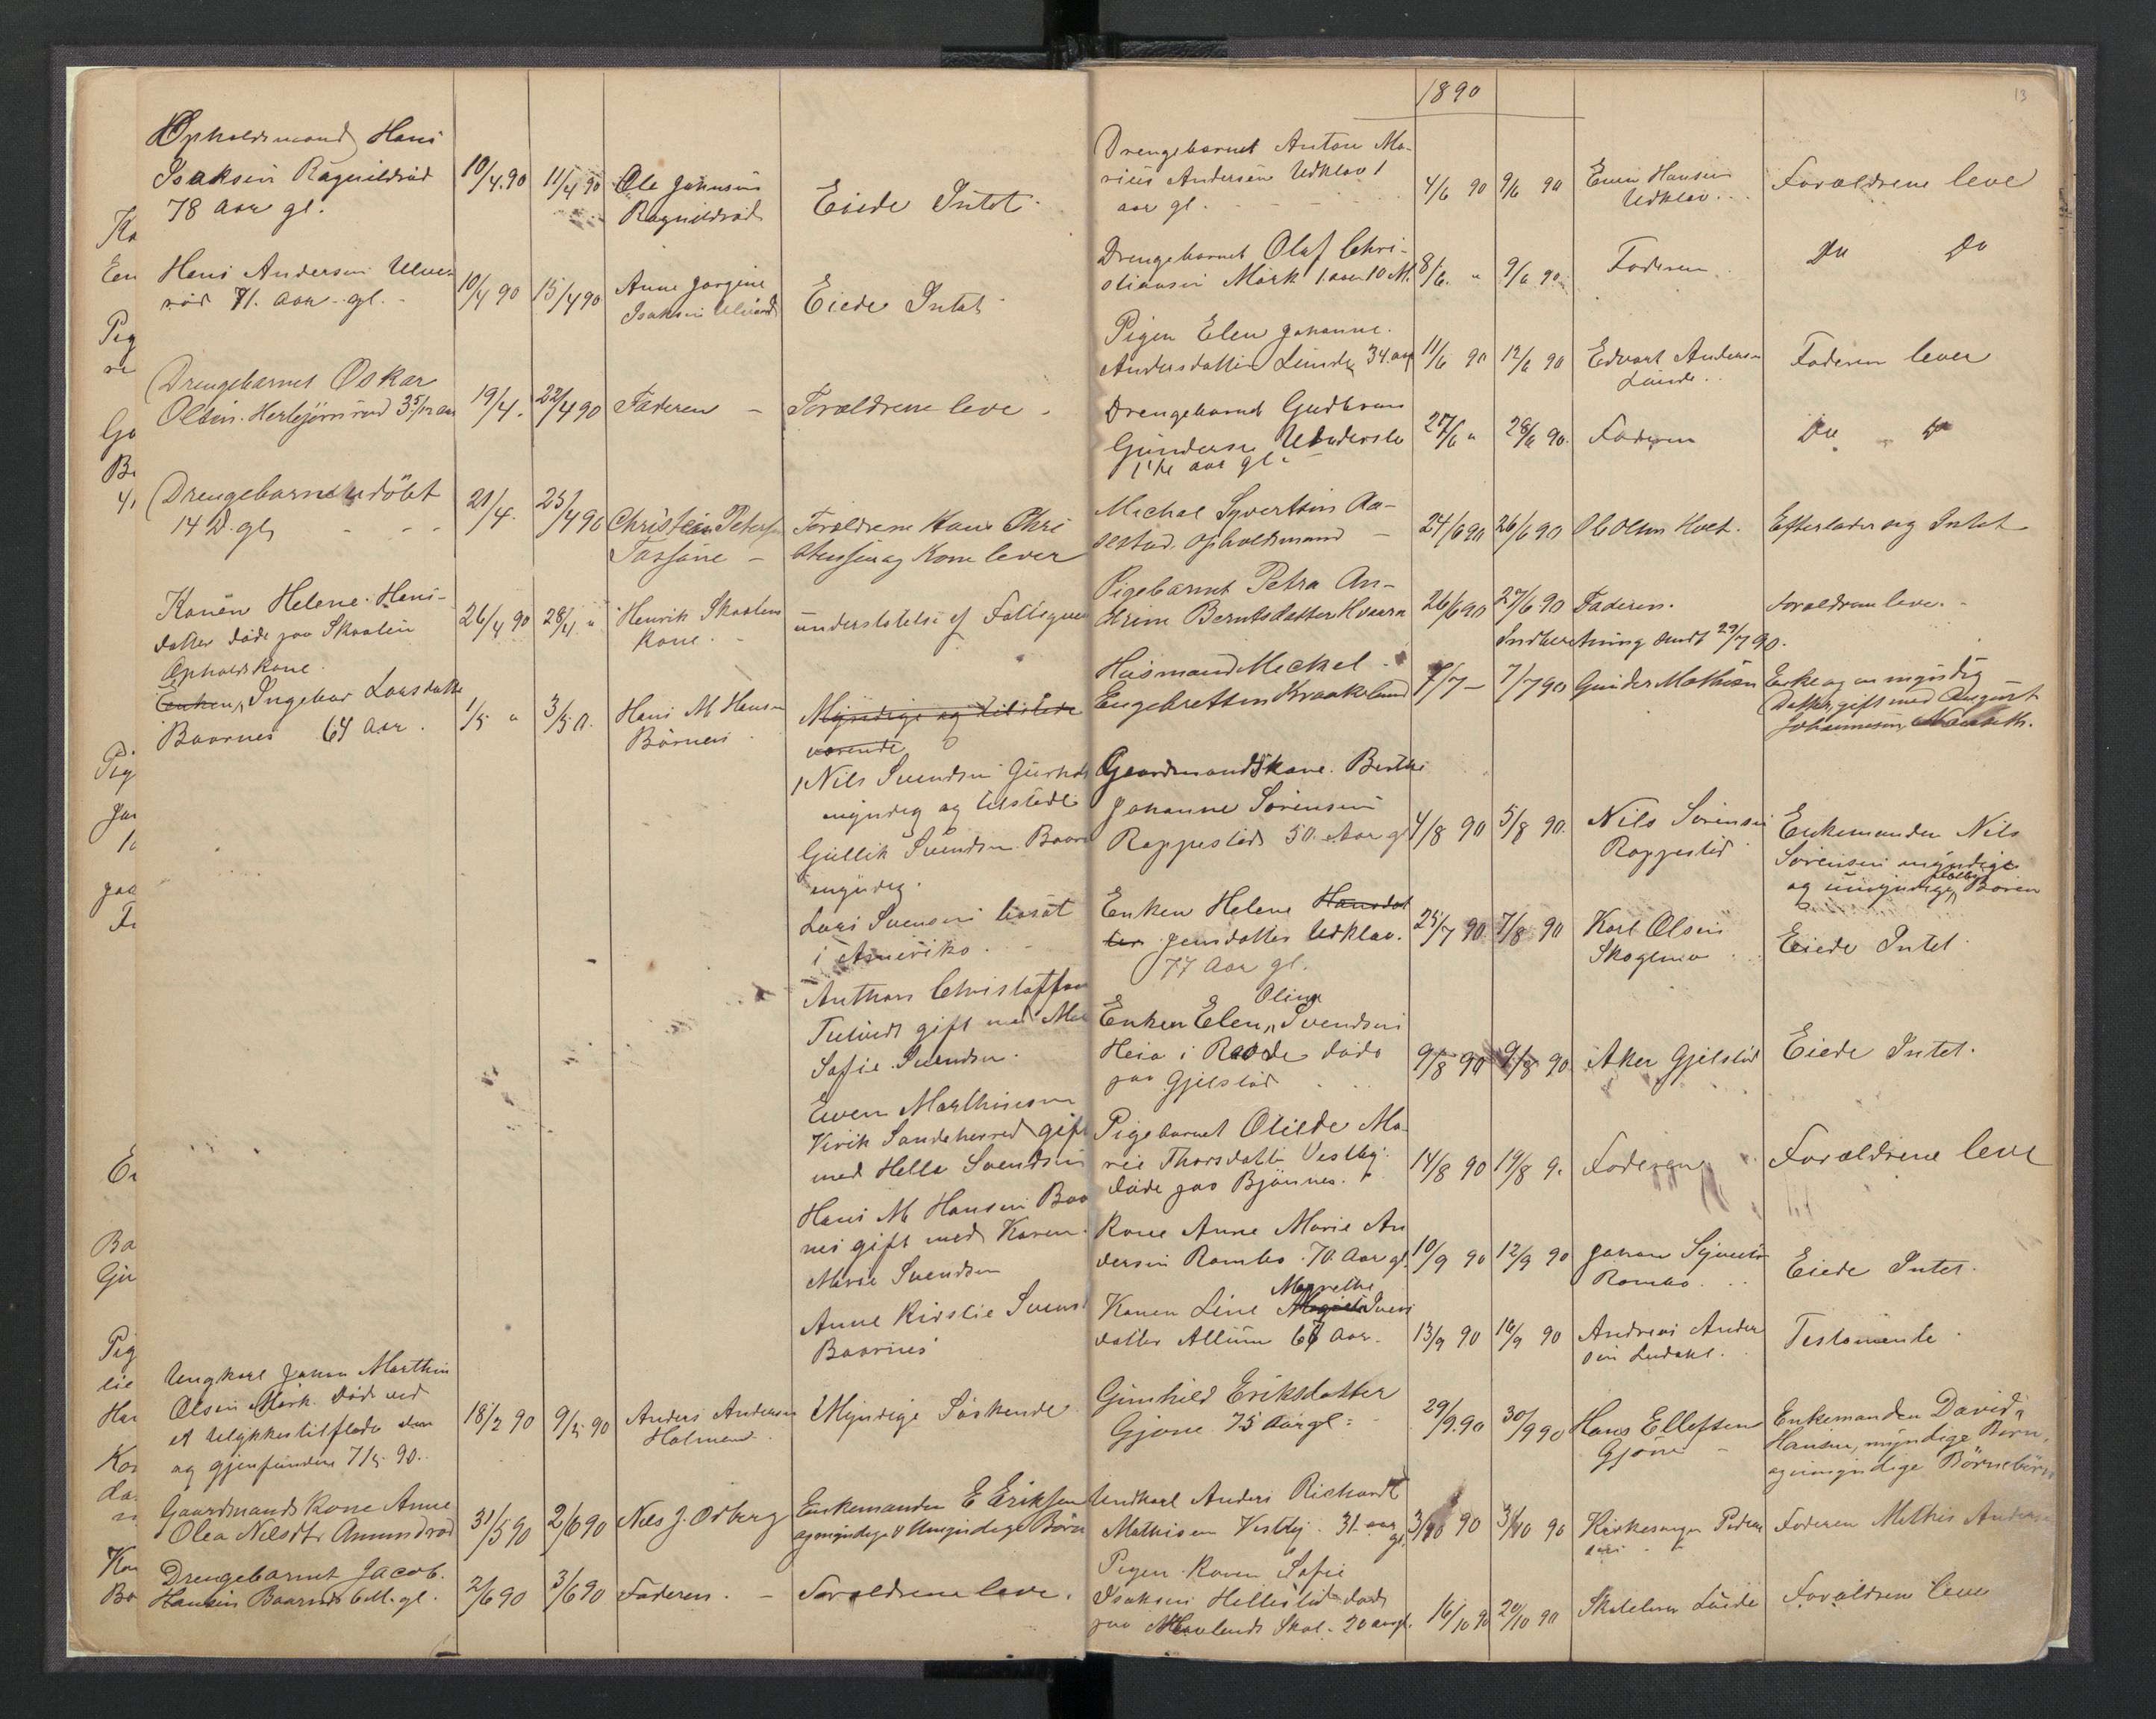 Opholdsmand Hans
Isaksen Ragnildrød
78 Aar gl.
10/4.90 11/4 90
Ole Johnsen
Ragnildrød
Eiede Intet.
Hans Andersen Ulve-
rød 71. Aar gl.
10/4 90 15/4 90
Anne Jørgine
Isaksen
Eiede Intet
Drengebarnet Oskar
Olsen. Herbjørnsrød 3 5/12 aar
19/4. 22/4 90
Faderen
Forældrene leve
Drengebarn udöbt
14 D. gl.
21/4. 25/4 90
Christian Petersen
Forældrene Hans Chri
stensen og Kone lever
Konen Helene Hans-
datter døde paa Skaalen
Opholdskone.
26/4 90 28/4 "
Henrik Skaalens
kone.
understøttelse af Fattigv
Enken, Ingebor Larsdatter
Baarnes 64 Aar.
1/5 " 3/5 a.
Hans M Hansen
Börnes
Myndige og tilstede
værende
1 Nils Svendsen
myndig og tilstede
Gullik Svendsen Baar
myndig.
Lars Svensen bosat
i Ameriko.
Anthon Christoffer
gift med Ma
Sofie Svendsen.
Even Marthinsen
Virik Sandeherred gift
med Hella Svendsen
Hans M Hansen Baa
nes gift med Karen
Marie Svendsen
Anne Kirstie Svens
Baarnes
Ungkarl Johan Marthin
Olsen Mørk. Død ved
et Ulykkestilfælde
og gjenfunden 7/5 90.
18/2 90 9/5 90
Anders Andersen
Holmen
Myndige Søskende
Gaardmands Kone Anne
Olea Nilsdtr Amundrød
31/5 90 2/6 90
Nils J. Odberg
Enkemanden E Eriksen
og myndige & Umyndige Börn
Drengebarnet Jacob.
Hansen Baarnes 6 M. gl.
2/6 90 3/6 90
Faderen.
Forældrene leve.
1890
13
Drengebarnet Anton Ma-
rius Andersen Udklav 1
aar gl.
4/6 90 9/6 90
Even Hansen
Udklav.
Forældrene leve
Drengebarnet Olaf Chri-
stiansen Mørk 1 aar 10 M.
8/6. " 9/6 90
Faderen
Do Do
Pigen Elen Johanne.
Andersdatter Lunde, 34. aar
11/6 90 12/6 90
Edvart Andersen
Lunde.
Faderen lever
Drengebarnet Gudbran
Gundersen
1 1/2 aar gl.
27/6 " 28/6 90.
Faderen
Do Do
Michal Syvertsen Aa-
sestad. Opholdsmand
24/6 90 26/6 90
Ole Olsen Holt.
Efterlader sig Intet
Pigebarnet Petra An-
drine Berntsdatter Hvaara
26/6 90 27/6 90
Faderen.
Forældrene leve.
Indberetning sendt 29/7 90.
Husmand Mickel
Engebretsen Kraakelund
7/7 90
Gunder Mathisen
Enke og en myndig
Datter, gift med August
Johannesen,
Gaardmandskone. Berthe
Johanne Sørensen
Rappestad 50. Aar gl
4/8 90 5/8 90.
Nils Sørensen
Rappestad
Enkemanden Nils
Sørensen myndige
og umyndige Børen
Enken Helene Hansdat
ter Jensdatter Udklav.
77 Aar gl.
25/7 90 7/8 90
Karl Olsen
Eiede Intet.
Oline
Enken Elen " Svendsen
Heia i Raade døde
paa Gjelstad
9/8 90 9/8 90
Aker Gjelstad
Eiede Intet.
Pigebarnet Otilde Ma-
rie Thorsdatter Vestby.
døde paa Bjønnes.
14/8 90 19/8 9.
Faderen
Forældrene leve
Kone Anne Marie An
dersen Rambo. 70 Aar gl.
10/9 90 12/9 90
Johan
Rambo.
Eiede Intet.
Margrethe
Konen Line Svens
datter Allum 67 Aar.
13/9 90 16/9 90
Andreas Ander
sen
Testamente
Gunhild Eriksdatter
Gjone 75 Aar gl.
29/9.90 30/9 90
Hans Ellefsen
Gjøne
Enkemanden David
Hansen, myndige Børn,
og umyndige Börnebörn
Undkarl Anders Richardt
Mathisen Vestby. 31 aar
gl.
3/10 90 3/10 90
Kirkesanger Peder
sen
Faderen Mathis Andersen
Pigen Karen Sofie
Isaksen Hillestad døde
paa Skol. 20 aar gl.
16/10 90 20/10 90
Skolelærer Lunde
Forældren leve